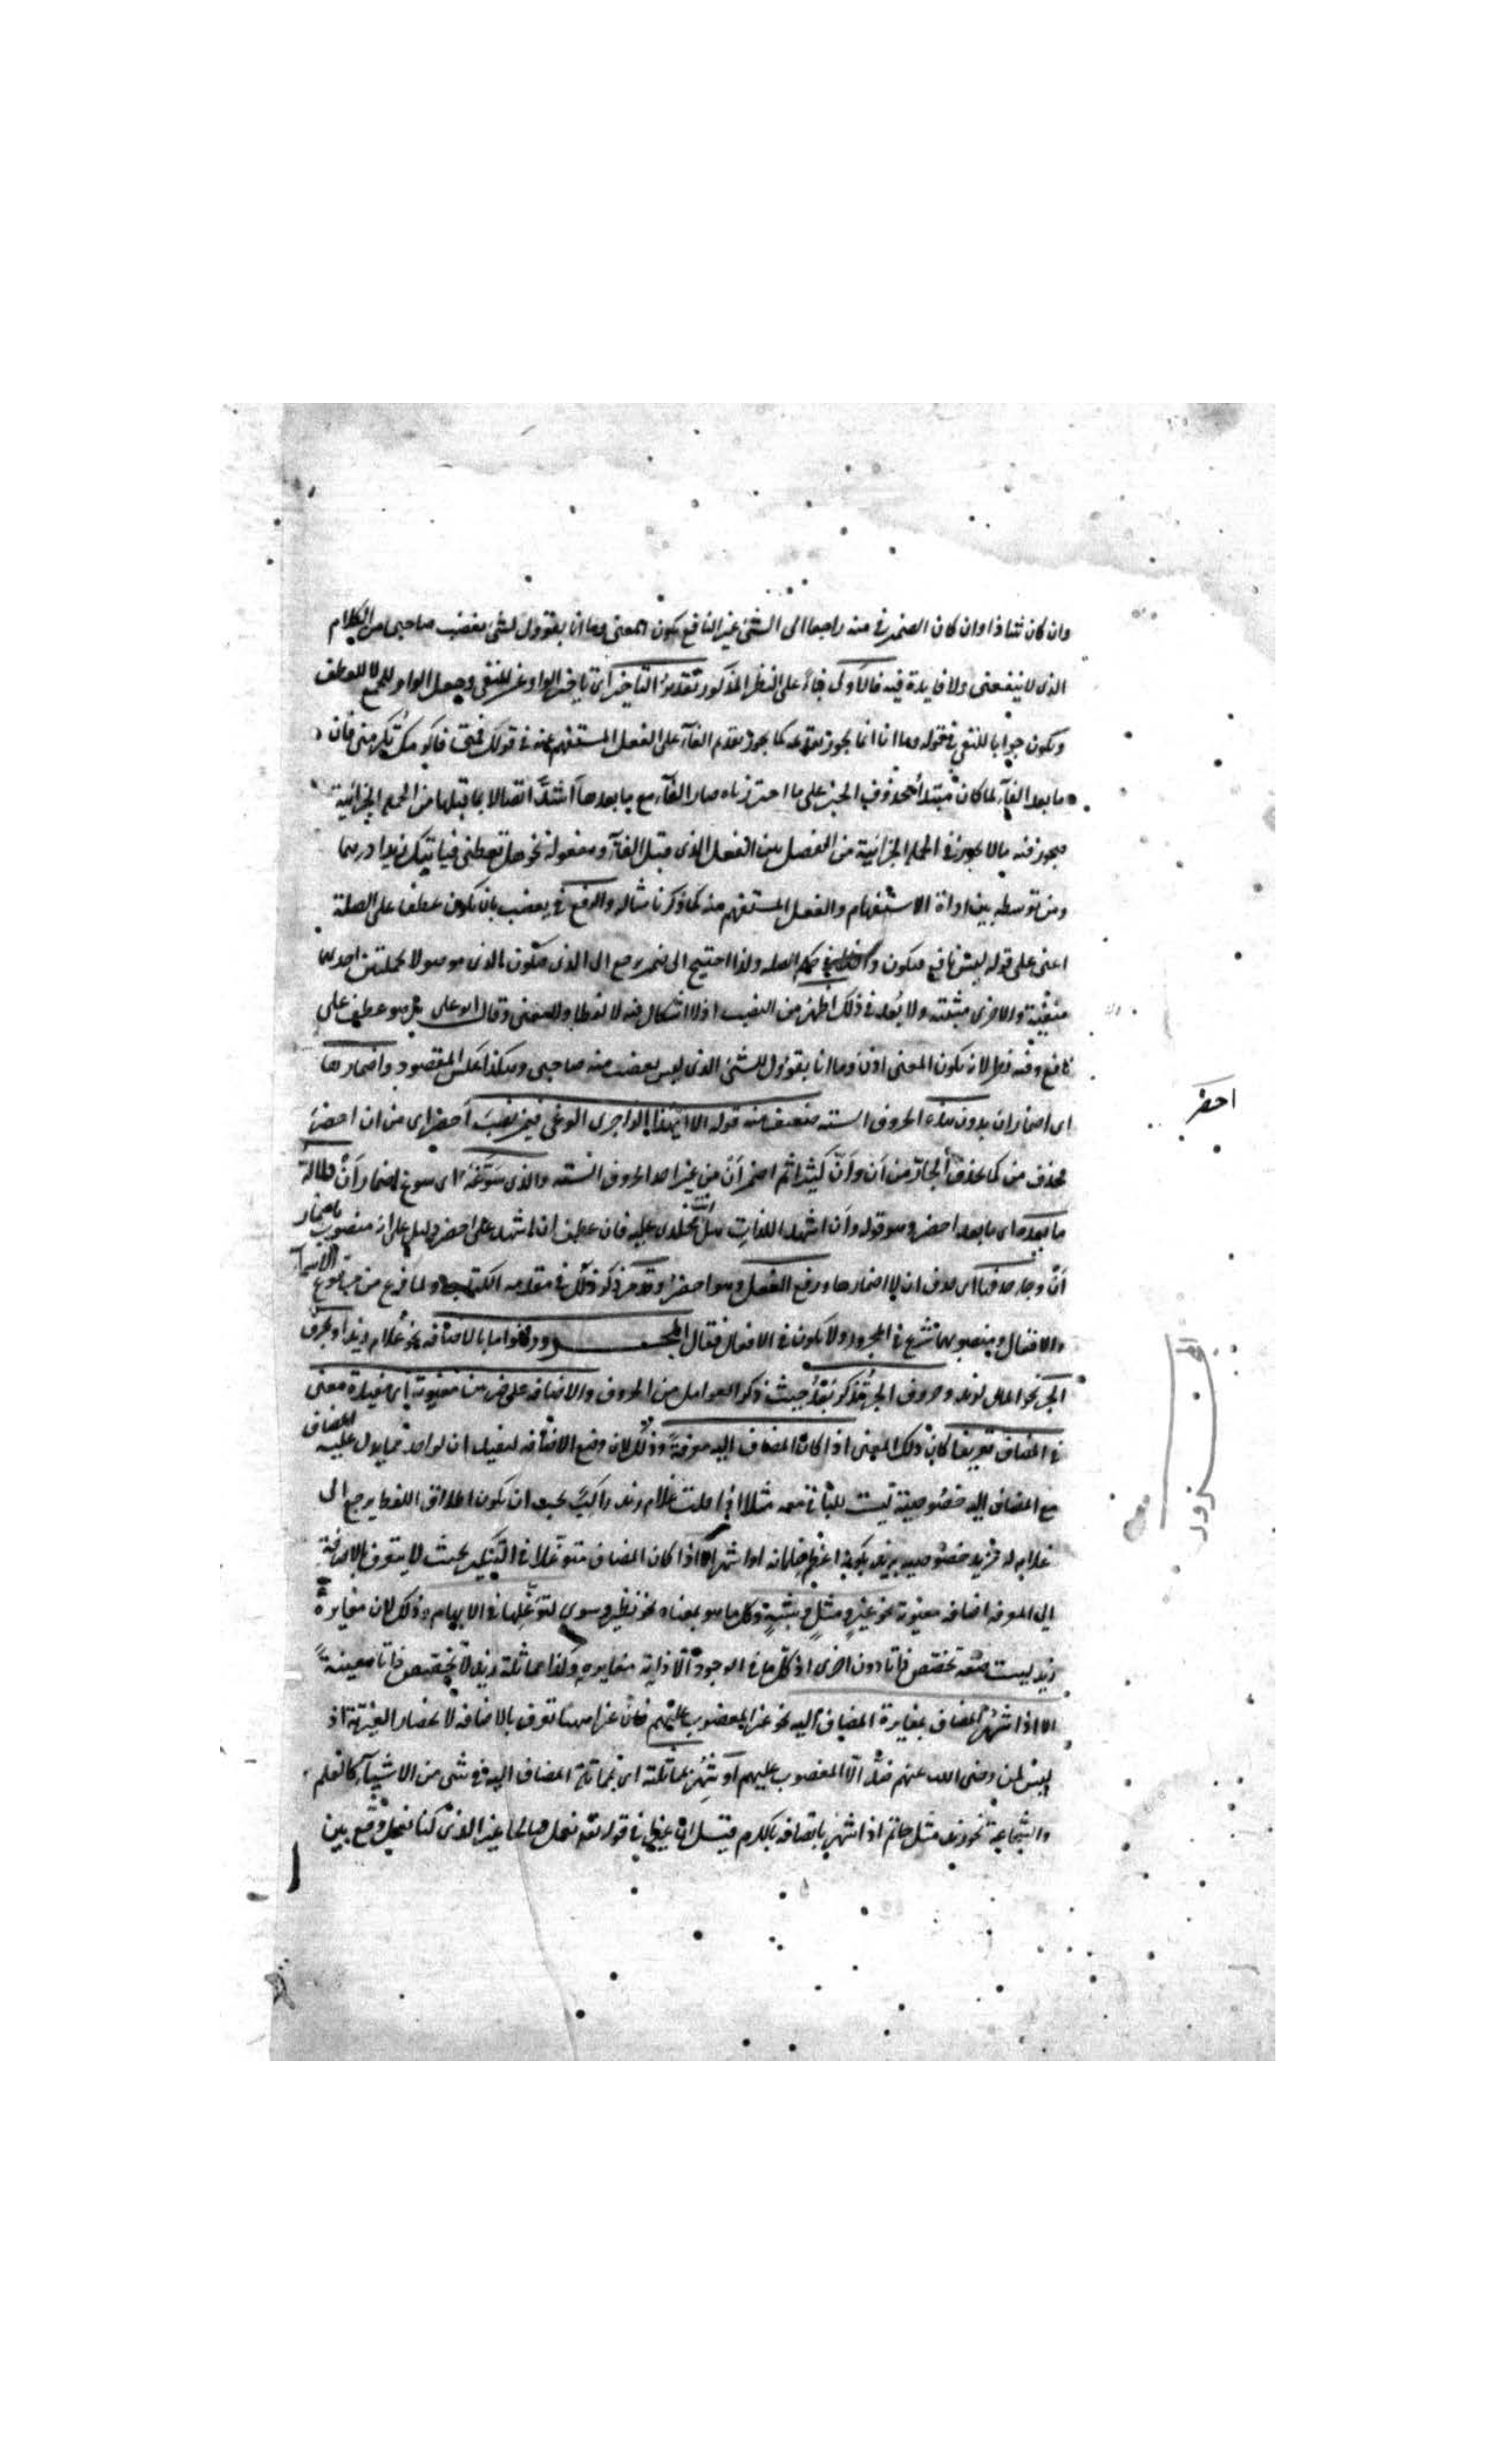 وان كان شاذا وان كان الضمير في منه راجعا الى الشئ غير النافع يكون المعنى وما انا بقوول لشئ يغضب صاحبى من الكلام
الذى لا ينفعنى ولا فايدة فيه فالاولى على النظر المذكور تقدير التاخير اى تاخير الواو عن النفى وجعل الواو للجمع لا للعطف
ويكون جوابا للنفى فى قوله وما انا انما يجوز تقدمه كما يجوز تقدم الفاء على الفعل المستفهم عنه فى قولك متى فاكرمك تكرمنى فان
ما بعد الفاء لما كان مبتدأ محذوف الخبر على ما اخترناه صار الفاء مع ما بعدها اشد اتصالا بما قبلها من الجملة الجزائية
فيجوز فيه ما لا يجوز فى الجملة الجزائية من الفصل بين الفعل الذى قبل الفاء ومفعوله نحو هل تعطى فياتيك زيدا درهما
ومن توسطه بين اداة الاستفهام والفعل المستفهم عنه كما ذكرنا مثاله والرفع فى يغضب بان يكون عطفا على الصلة
اعنى على قوله ليس نافع فيكون فى حكم الصلة ولذا احتيج الى ضمير يرجع الى الذى فيكون الذى موصولا بجملتين احديهما
منفية والاخرى مثبتة ولا بعد فى ذلك اظهر من النصب اذ لا اشكال فيه لا لفظا ولا معنى وقال ابو على هو عطف على
نافع وفيه نظر لانه يكون المعنى اذن وما انا بقوول للشئ الذى ليس يغضب منه صاحبى وهكذا عكس المقصود واضمارها
اى اضمار ان بدون هذه الحروف الستة ضعيف منه قوله الا ايهذا الزاجرى الوغى فيمن نصب احضر اى من ان احضر
فحذف من كما يحذف الجار من ان وان كثيرا ثم اضمر ان من غير احد الحروف الستة والذى سوغه اى سوغ اضمار ان دلالة
ما بعده اى ما بعد احضر وهو قوله وان اشهد اللذات هل انت مخلدى عليه فان عطف ان اشهد على احضر دليل على انه منصوب باضمار
ان وجاء حذفها اى حذف ان لا اضمارها ورفع الفعل وهو احضر وقد مر ذكر ذلك فى مقدمه الكتاب ولما فرغ من مرفوع الاسماء
والافعال ومنصوبهما شرع فى المجرور ولا يكون فى الافعال فقال المجرور وهو اما بالاضافه نحو غلام زيد او بحرف
الجر نحو المال لزيد وحروف الجر تذكر بعد حيث ذكر العوامل من الحروف والاضافه على ضربين معنوية اى مفيدة معنى
فى المضاف تعريفا كان ذلك المعنى اذا كان المضاف اليه معرفة وذلك لان وضع الاضافه لتفيد ان لواحد مما يدل عليه المضاف
مع المضاف اليه خصوصية ليست للباقى معه مثلا اذا قلت غلام زيد راكب يجب ان يكون اطلاق اللفظ يرجع الى
غلام له مزيد خصوصيه بزيد بكونه اعظم غلمانه او اشهر الا اذا كان المضاف متوغلا فى التنكير بحيث لا يتعرف بالاضافة
الى المعرفه اضافه معنوية نحو غير ومثل وشبه وكل ما هو بمعناه نحو نظير وسوى لتوغلها فى الابهام وذلك لان مغايرة
زيد ليست صفه تختص ذاتا دون اخرى اذ كل ما فى الوجود الا ذاته مغايره وكذا مماثلة زيد لا تخصص ذاتا معينة
الا اذا شهر المضاف بمغايرة المضاف اليه نحو غير المغضوب عليهم فان غير ههنا تعرف بالاضافه لانحصار الغيرية اذ
ليس لمن رضى الله عنهم ضد الا المغضوب عليهم او شهر بمماثلته اى بمماثلة المضاف اليه فى شئ من الاشياء كالعلم
والشجاعة نحو زيد مثل حاتم اذا اشهر باتصافه بالكرم قيل ان غير فى قوله تعم نعمل صالحا غير الذى كنا نعمل وقع بين
احضر